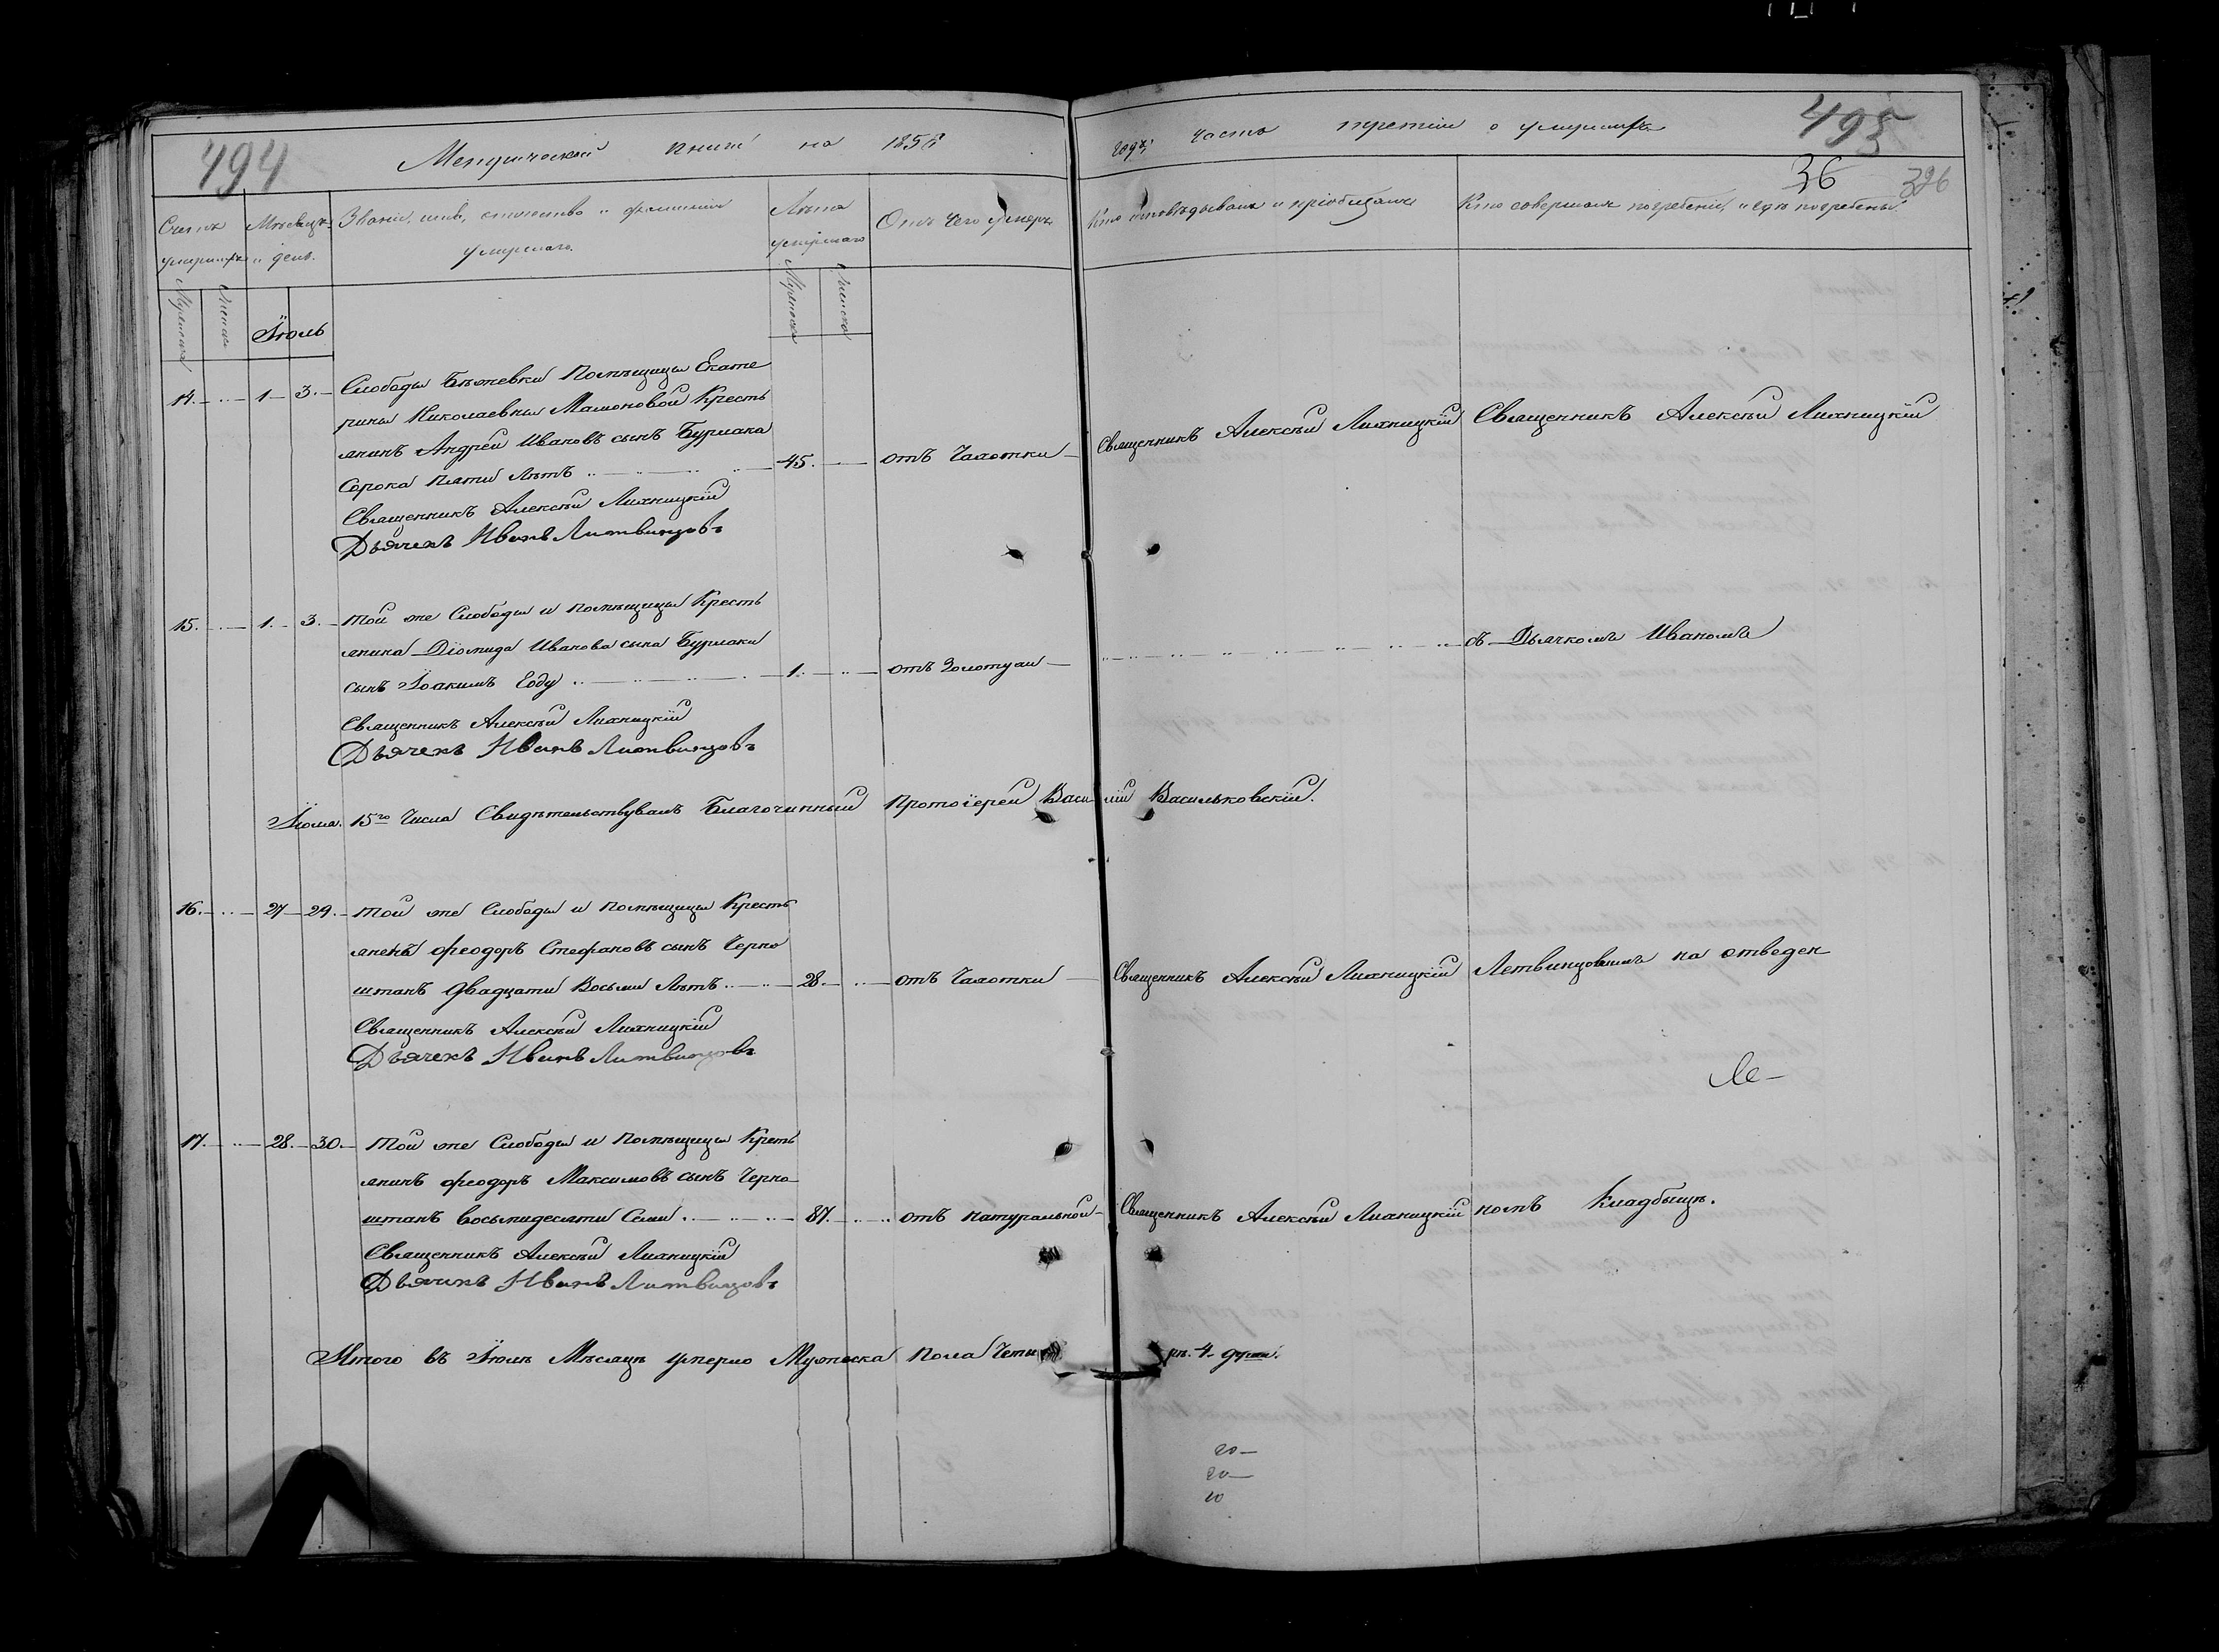 494
Метрической книги на 185
году, часть третія о умершихъ
495
36
326
Счетъ умершихъ
Мѣсяцъ и день.
Званіе, имя, отчество и фамилія умершаго.
Лѣта умершаго
Отъ чего умеръ
Кто исповѣдывалъ и пріобщалъ
Кто совершалъ погребеніе и гдѣ погребены.
Мужеска
Женска
Мужеска
Женска
Іюль
14. 1 3. Слободы Бѣжевки Помѣщицы Екате
рины Николаевны Мамоновой Кресть
янинъ Андрей Ивановъ сынъ Бурлака
Сорока пяти лѣтъ 45. отъ Чахотки Священникъ Алексѣй Лихницкій Священникъ Алексѣй Лихницкій
Священникъ Алексѣй Лихницкій
Дьячекъ Иванъ Литвинцовъ
15. 1. 3. Той же Слободы и помѣщицы Кресть
янина Діомида Иванова сына Бурлаки
сынъ Іоакимъ Году 1. отъ Золотухи съ Дьячкомъ Иваномъ
Священникъ Алексѣй Лихницкій
Дьячекъ Иванъ Литвинцовъ
Іюля 15го Числа Свидѣтельствувалъ Благочинный Протоіерей Василій Васильковскій.
16. 27 29. Той же Слободы и помѣщицы Кресть
яненъ Феодоръ Стефановъ сынъ Черно
штанъ Двадцати Восьми Лѣтъ 28. отъ Чахотки Священникъ Алексѣй Лихницкій Летвинцовымъ на отведен
Священникъ Алексѣй Лихницкій
Дьячекъ Иванъ Литвинцовъ
17. 28. 30. Той же Слободы и Помѣщицы Кресть
янинъ Феодоръ Максимовъ сынъ Черно
штанъ Восьмидесяти Семи 87. отъ натуральной Священникъ Алексѣй Лихницкій номъ Кладбищѣ.
Священникъ Алексѣй Лихницкій
Дьячекъ Иванъ Литвинцовъ
Итого въ Іюлѣ Мѣсяцѣ умерло Мужеска пола Четыре. 4. души.
20
20
20